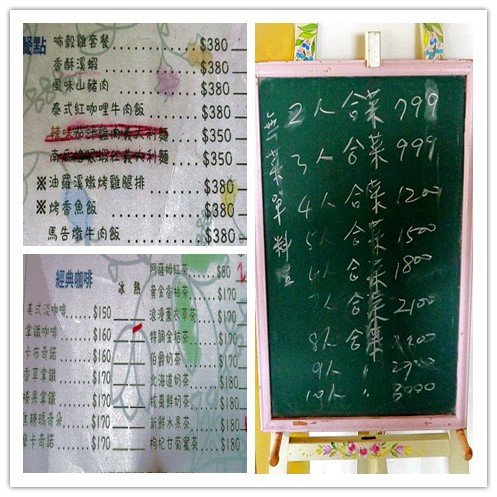 餐點
咘穀雞套餐 $380
香酥溪蝦 $380
風味山豬肉 $380
泰式紅咖哩牛肉飯 $380
$350
$350
※油羅溪嫩烤雞腿排 $380
※烤香魚飯 $380
馬告燉牛肉飯 $380
經典咖啡
冰 熱
美式淡咖啡 $150
拿鐵咖啡 $160
卡布奇諾 $160
香草拿鐵 $170
榛果拿鐵 $170
焦糖瑪奇朵 $170
摩卡奇諾 $170
阿薩姆紅茶 $80
黃金香柚茶 $170
浪漫薰衣草茶 $170
特調金桔茶 $170
伯爵奶茶 $170
北海道奶茶 $180
核棗鮮奶茶 $180
新鮮水果茶 $180
枸杞甘菊蜜茶 $180
無菜單料
2人合菜 799
3人合菜 999
4人合菜 1200
5人 1500
6人合菜 1800
7人合菜 2100
8人合菜
9人 〃 2700
10人 〃 3000